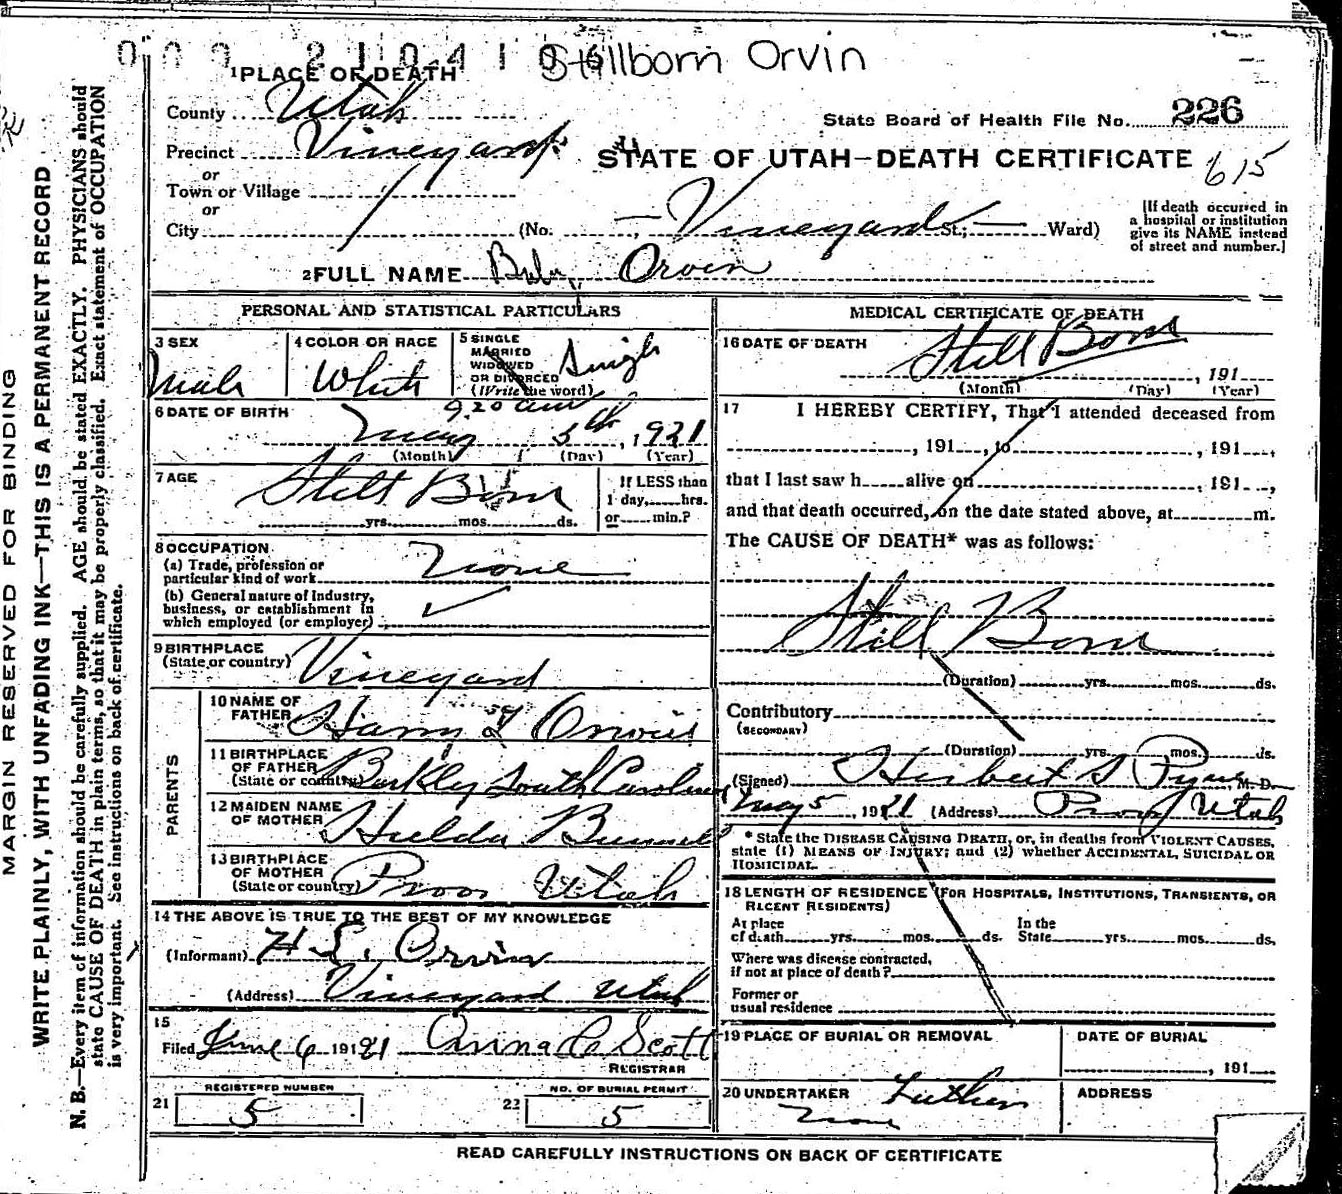 009 210410
Stillborn Orvin
1 PLACE OF DEATH
County Utah
State Board of Health File No. 226
Precinct Vineyard
STATE OF UTAH—DEATH CERTIFICATE
615
or
Town or Village
or
City (No. Vineyard St.; Ward)
[If death occurred in
a hospital or institution
give its NAME instead
of street and number.]
2 FULL NAME Baby Orvin
PERSONAL AND STATISTICAL PARTICULARS
3 SEX
Male
4 COLOR OR RACE
White
5 SINGLE
MARRIED
WIDOWED
OR DIVORCED
(Write the word)
Single
6 DATE OF BIRTH
9 20 am
May 5th, 1921
(Month) (Day) (Year)
7 AGE
Still Born
yrs. mos. ds.
If LESS than
1 day, hrs.
or min.?
8 OCCUPATION
(a) Trade, profession or
particular kind of work None
(b) General nature of Industry,
business, or establishment in
which employed (or employer)
9 BIRTHPLACE
(State or country) Vineyard
PARENTS
10 NAME OF
FATHER Harry L Orvin
11 BIRTHPLACE
OF FATHER
(State or country) Berkley South Carolina
12 MAIDEN NAME
OF MOTHER Hulda Bunnel
13 BIRTHPLACE
OF MOTHER
(State or country) Provo Utah
14 THE ABOVE IS TRUE TO THE BEST OF MY KNOWLEDGE
(Informant) H L. Orvin
(Address) Vineyard Utah
15
Filed June 6 1921 Scott
REGISTRAR
REGISTERED NUMBER
21 5
NO. OF BURIAL PERMIT
22 5
MEDICAL CERTIFICATE OF DEATH
16 DATE OF DEATH
Still Born
, 191
(Month) (Day) (Year)
17 I HEREBY CERTIFY, That I attended deceased from
, 191 , to , 191 ,
that I last saw h alive on , 191 ,
and that death occurred, on the date stated above, at m.
The CAUSE OF DEATH* was as follows:
Still Born
(Duration) yrs. mos. ds.
Contributory
(SECONDARY)
(Duration) yrs. mos. ds.
(Signed) Herbert S Pyne, M. D.
May 5, 1921 (Address) Provo Utah
* State the DISEASE CAUSING DEATH, or, in deaths from VIOLENT CAUSES,
state (1) MEANS OF INJURY; and (2) whether ACCIDENTAL, SUICIDAL OR
HOMICIDAL.
18 LENGTH OF RESIDENCE (FOR HOSPITALS, INSTITUTIONS, TRANSIENTS, OR
RECENT RESIDENTS)
At place
of death yrs. mos. ds.
In the
State yrs. mos. ds.
Where was disease contracted,
if not at place of death?
Former or
usual residence
19 PLACE OF BURIAL OR REMOVAL
DATE OF BURIAL
, 191
20 UNDERTAKER
None
ADDRESS
READ CAREFULLY INSTRUCTIONS ON BACK OF CERTIFICATE
MARGIN RESERVED FOR BINDING
WRITE PLAINLY, WITH UNFADING INK—THIS IS A PERMANENT RECORD
N. B.—Every item of information should be carefully supplied. AGE should be stated EXACTLY. PHYSICIANS should
state CAUSE OF DEATH in plain terms, so that it may be properly classified. Exact statement of OCCUPATION
is very important. See instructions on back of certificate.